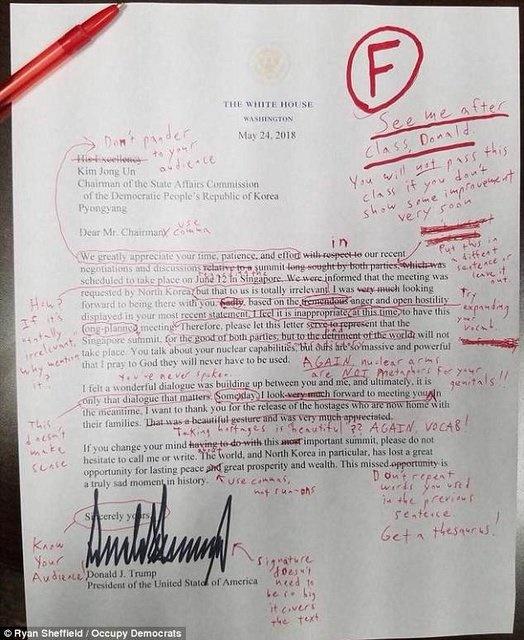 F
See me after
class, Donald.
You will not pass this
class if you don't
show some improvement
very soon
THE WHITE HOUSE
WASHINGTON
May 24, 2018
Don't pander
to your
audience
His Excellency
Kim Jong Un
Chairman of the State Affairs Commission
of the Democratic People's Republic of Korea
Pyongyang
use
comma
Dear Mr. Chairman
in
We greatly appreciate your time, patience, and effort with respect to our recent
negotiations and discussions relative to a summit long sought by both parties, which was
scheduled to take place on June 12 in Singapore. We were informed that the meeting was
requested by North Korea, but that to us is totally irrelevant. I was very much looking
forward to being there with you. Sadly, based on the tremendous anger and open hostility
displayed in your most recent statement, I feel it is inappropriate, at this time, to have this
long-planned meeting. Therefore, please let this letter serve to represent that the
Singapore summit, for the good of both parties, but to the detriment of the world, will not
take place. You talk about your nuclear capabilities, but ours are so massive and powerful
that I pray to God they will never have to be used.
Put this in
different
sentence or
leave it
out
Try
expanding
your
vocab
How?
If it's
totally
irrelevant,
why mention
it...
AGAIN, nuclear arms
are NOT metaphors for your
genitals!!
You've never spoken
I felt a wonderful dialogue was building up between you and me, and ultimately, it is
only that dialogue that matters. Someday, I look very much forward to meeting you. In
the meantime, I want to thank you for the release of the hostages who are now home with
their families. That was a beautiful gesture and was very much appreciated.
This
doesn't
make
sense
Taking hostages is beautiful?? AGAIN, VOCAB!
If you change your mind having to do with this most important summit, please do not
hesitate to call me or write. The world, and North Korea in particular, has lost a great
opportunity for lasting peace and great prosperity and wealth. This missed opportunity is
a truly sad moment in history.
about
use commas,
not run-ons
Don't repeat
words you used
in the previous
sentence.
Get a thesaurus!
Sincerely yours,
Know
Your
Audience!
Donald J. Trump
President of the United States of America
Signature
doesn't
need to
be so big
it covers
the text
© Ryan Sheffield / Occupy Democrats